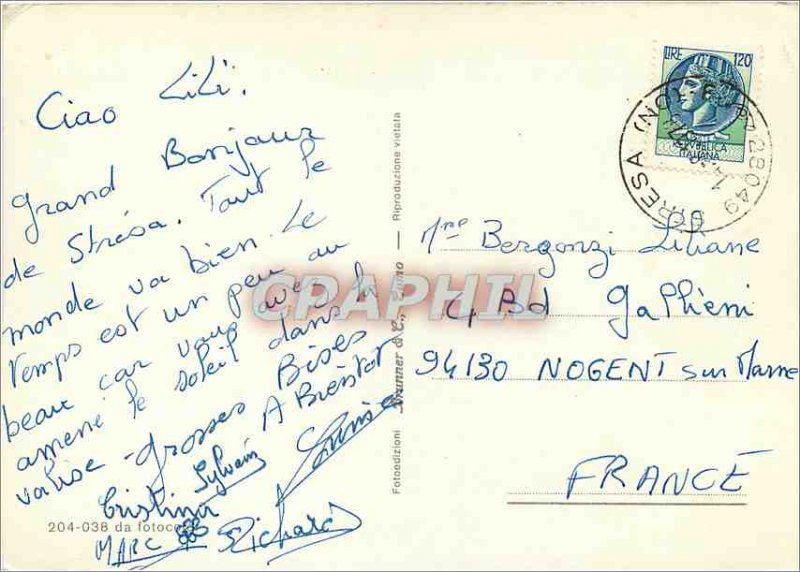 Ciao Lili.
Grand Bonjour
de Strésa. Tout le
monde va bien. Le
temps est un peu au
beau car vous avez
amené le soleil dans la
valise - Grosses Bises
A Bientôt
Sylvain
Louise
Cristina
MARC
Richard
204-038 da fotocolor
Fotoedizioni Brunner & C., Como — Riproduzione vietata
CPAPHIL
LIRE 120
REPVBBLICA
ITALIANA
28049 STRESA (NO)
Mme Bergonzi Liliane
4 Bd Gallieni
94130 NOGENT sur Marne
FRANCE